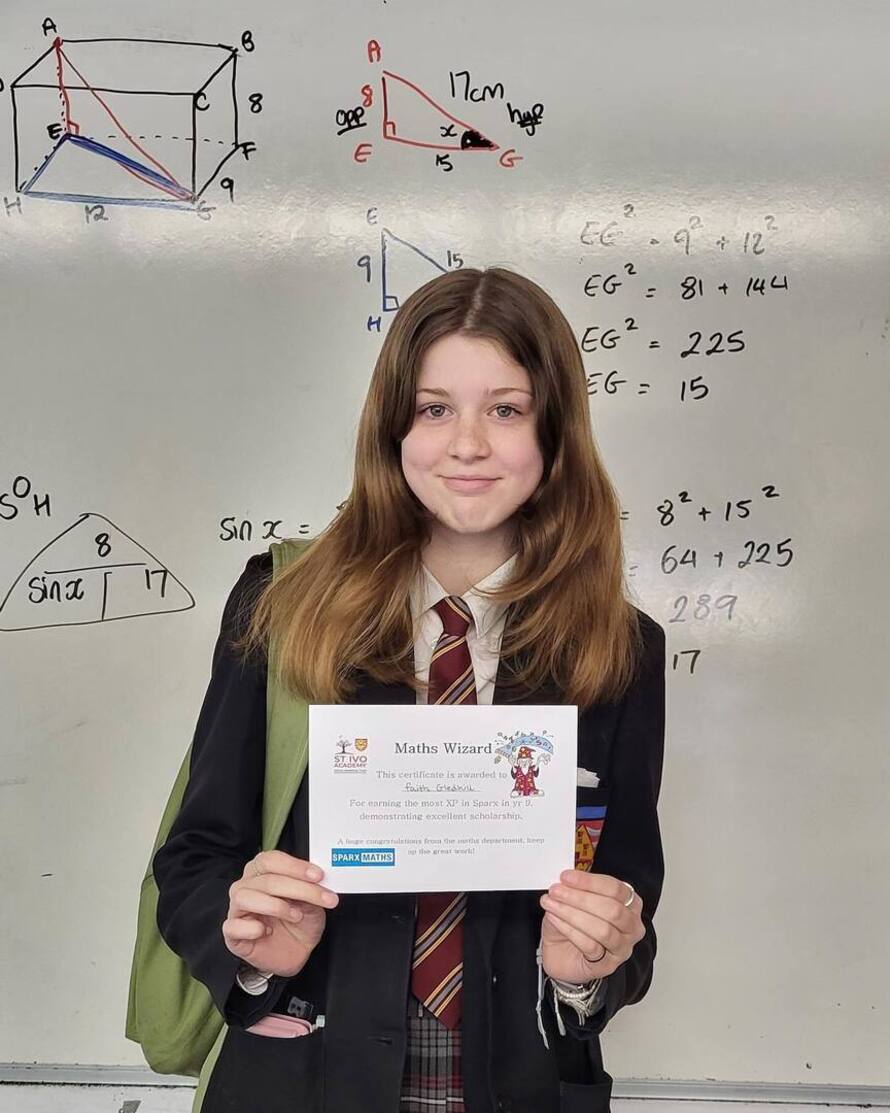 A
B
C
8
E
F
9
H
12
G
A
8
17cm
opp
hyp
x
E
15
G
E
9
15
H
EG² = 9² + 12²
EG² = 81 + 144
EG² = 225
EG = 15
SOH
8
sinx
17
Sin x =
= 8² + 15²
= 64 + 225
289
17
ST IVO
ACADEMY
Maths Wizard
This certificate is awarded to
Faith Gledhill
For earning the most XP in Sparx in yr 9,
demonstrating excellent scholarship.
A huge congratulations from the maths department, keep
up the great work!
SPARX MATHS